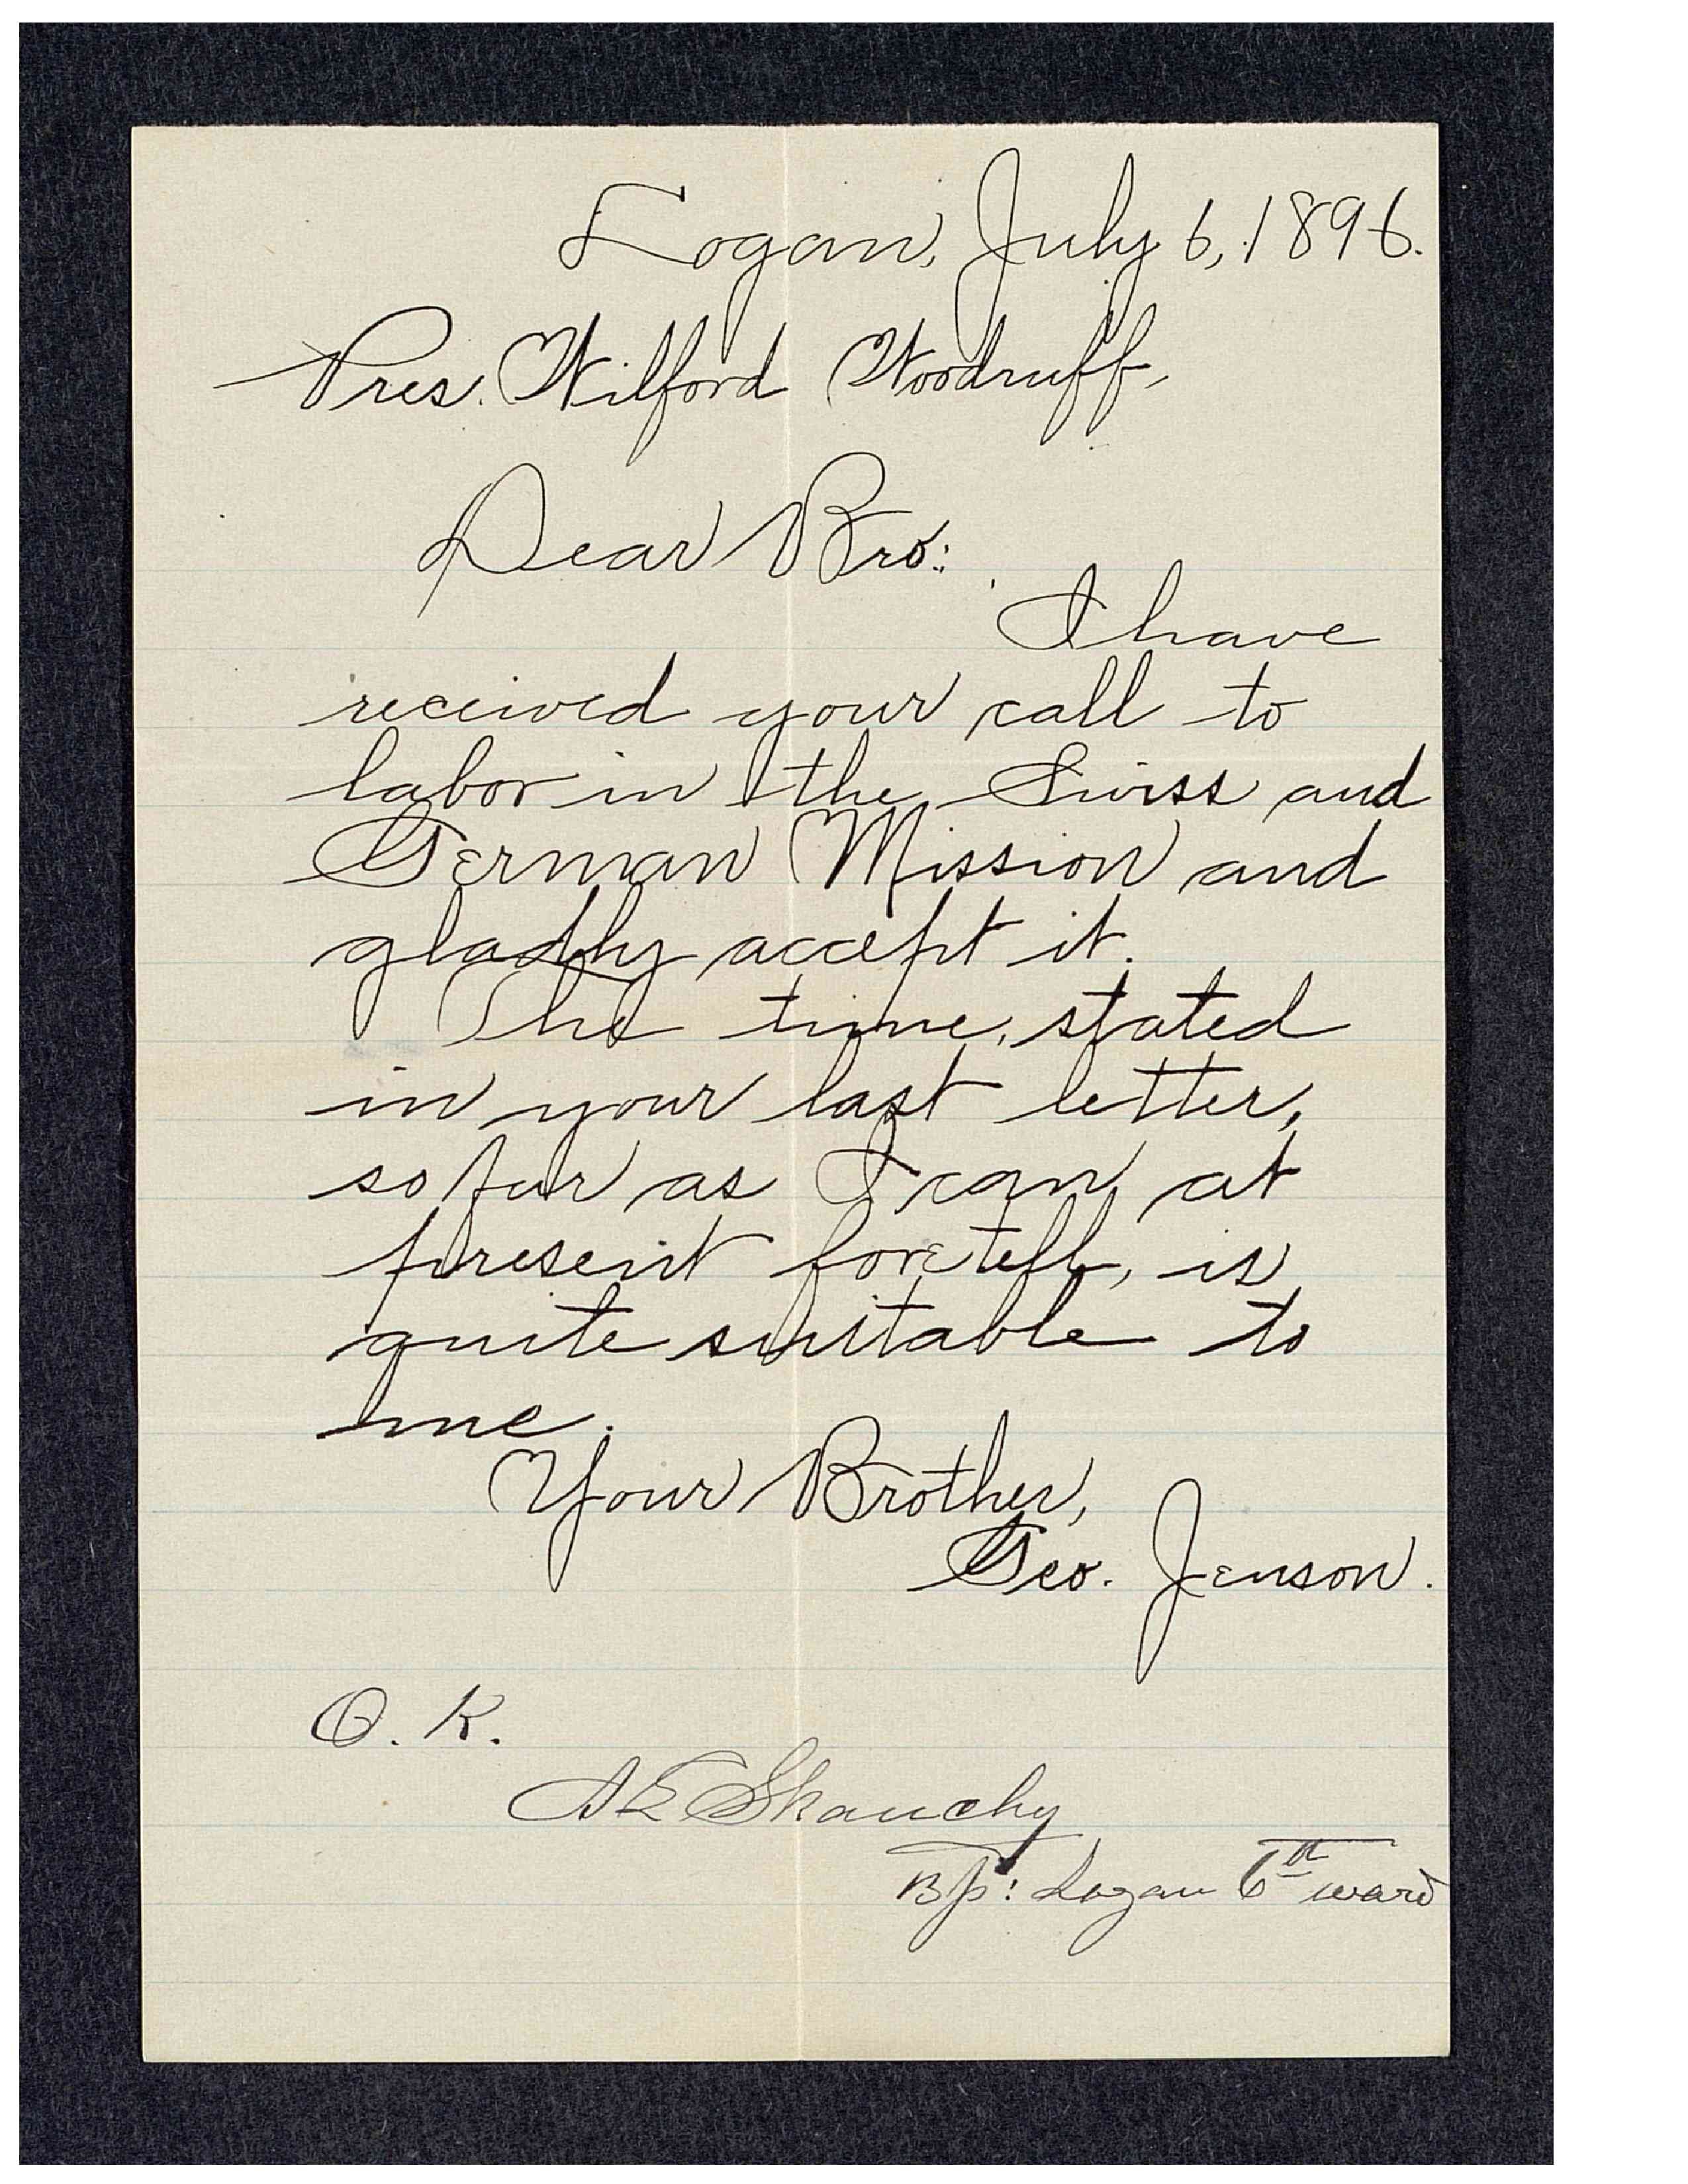 Logan, July 6, 1896.
Pres. Wilford Woodruff,
Dear Bro:
I have
received your call to
labor in the Swiss and
German Mission and
gladly accept it.
The time, stated
in your last letter,
so far as I can at
present foretell, is
quite suitable to
me.
Your Brother,
Geo. Jenson.
O. K.
A E Skanchy
Bp: Logan 6th ward